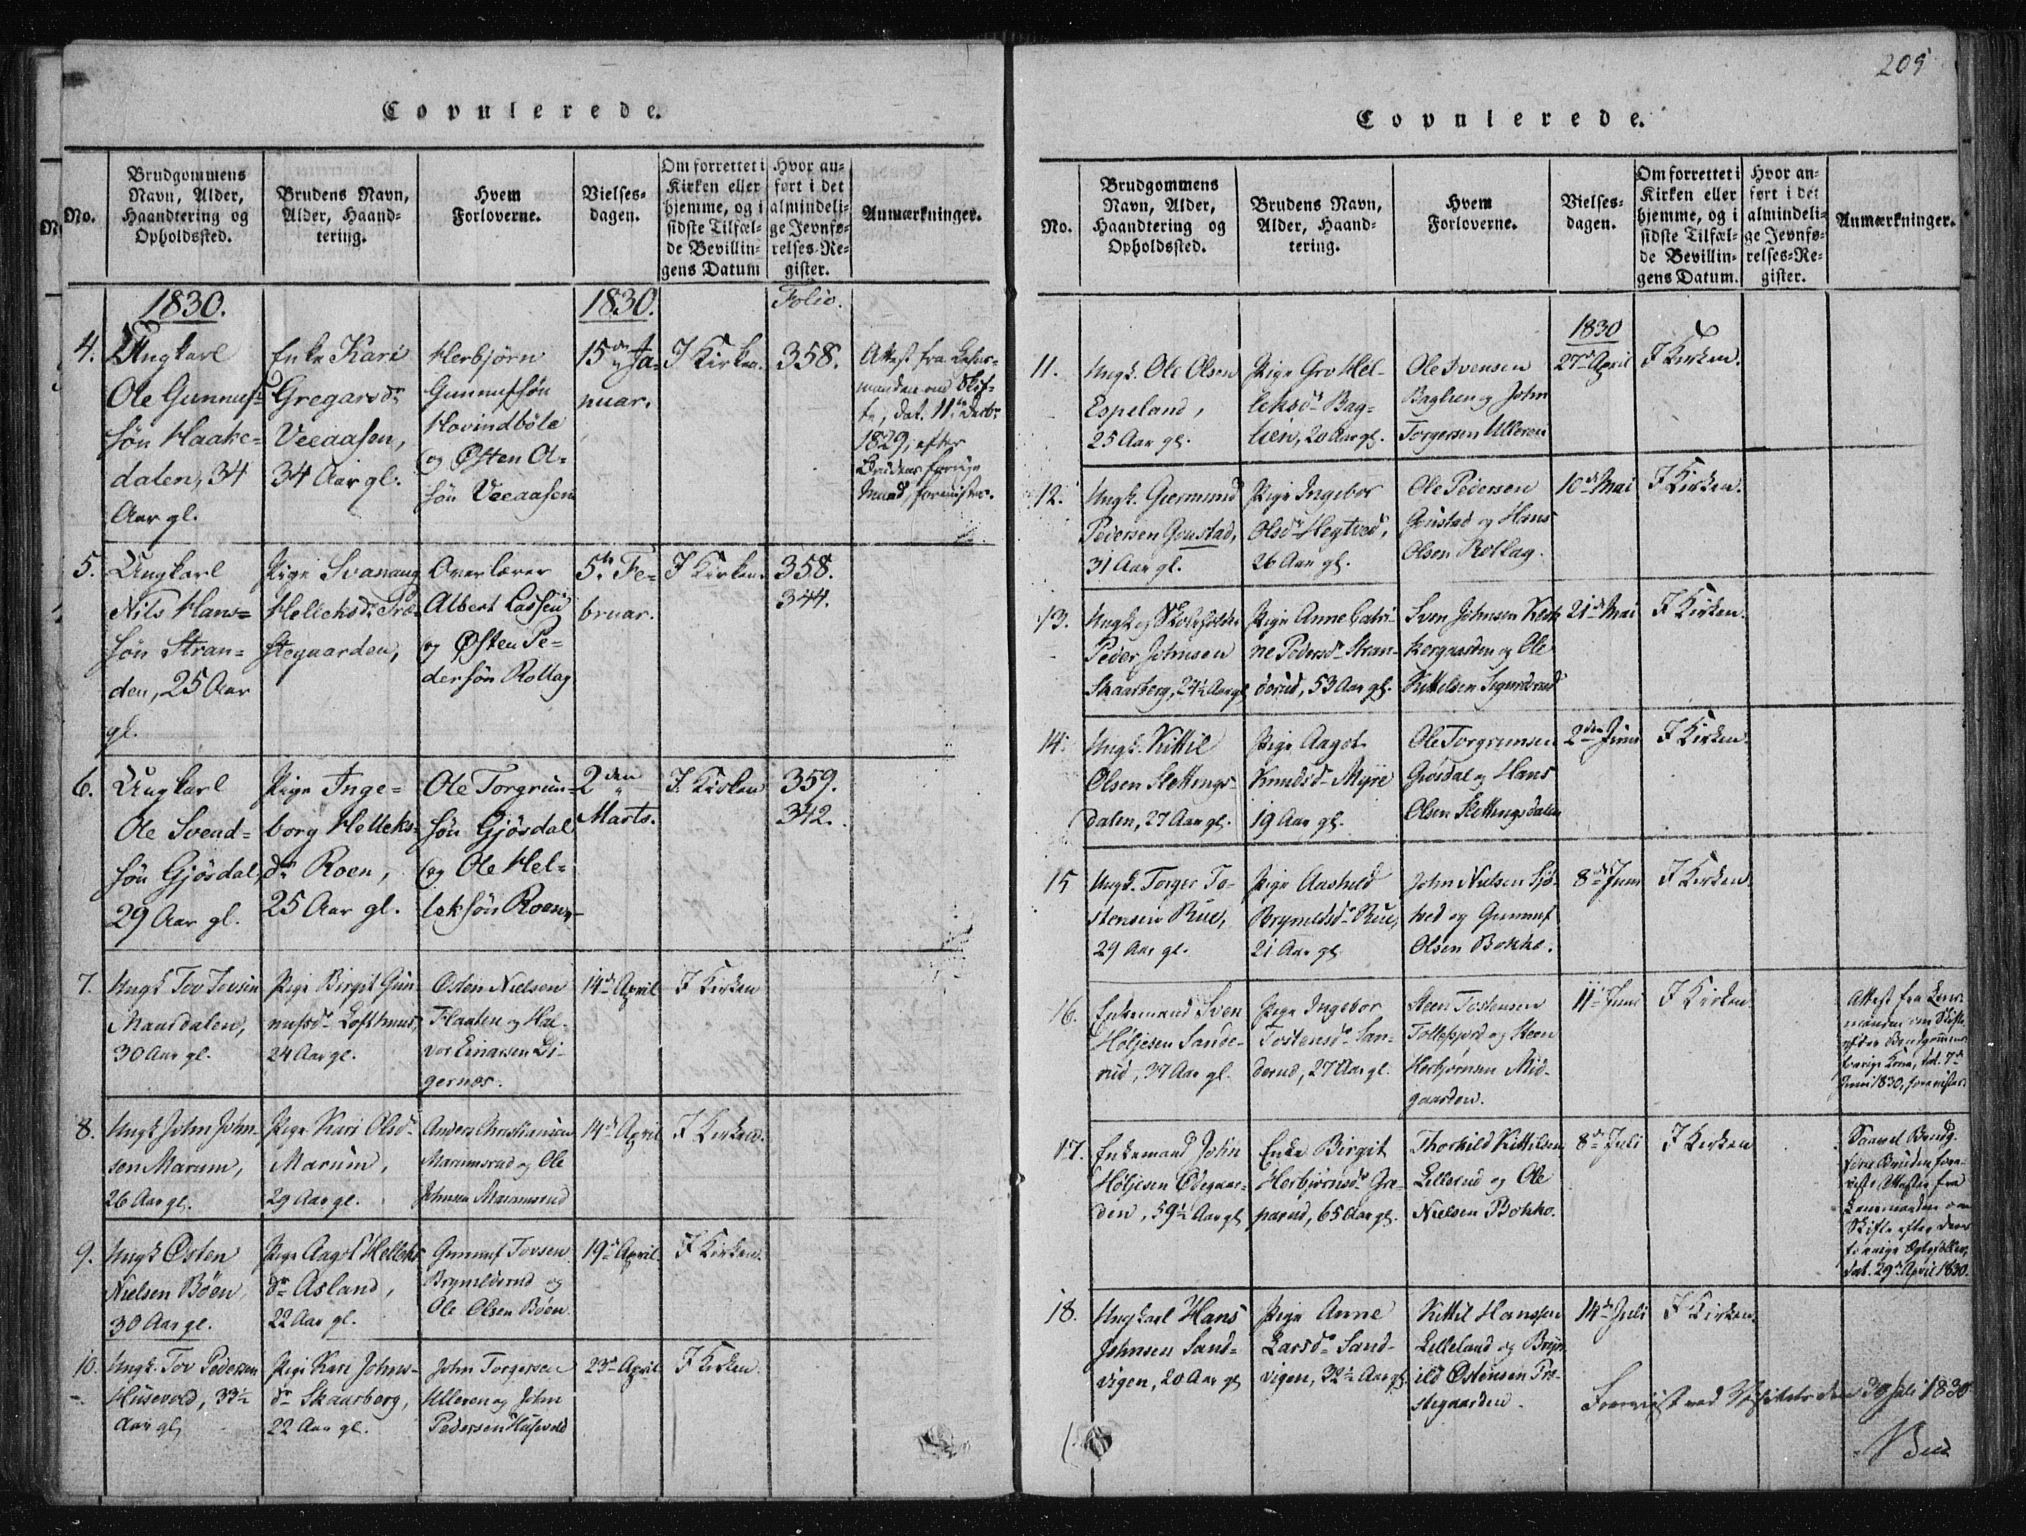 Copulerede.
No.
Brudgommens
Navn, Alder,
Haandtering og
Opholdssted.
Brudens Navn,
Alder, Haand-
tering.
Hvem
Forloverne.
Vielses-
dagen.
Om forrettet i
Kirken eller
hjemme, og i
sidste Tilfæl-
de Bevillin-
gens Datum
Hvor an-
ført i det
almindeli-
ge Jevnfø-
relses-Re-
gister.
Anmærkninger.
1830.
1830.
Folio.
4.
Ungkarl
Ole Gunnufs-
søn Haake-
dalen, 34
Aar gl.
Enke Kari
Gregarsdr
Veeaasen,
34 Aar gl.
Herbjørn
Gunnufsøn
Hovindbøle
og Østen O-
søn Veeaasen
15de Ja-
nuar.
I Kirken.
358.
Attest fra Lehns-
manden om Skif-
te, dat. 11te Decbr
1829, efter
Brudens forrige
Mand, forevistes.
5.
Ungkarl
Nils Hans-
søn Stran-
den, 25 Aar
gl.
Pige Svanaug
Helleksdr Træ-
stegaarden,
Overlærer
Albert Lassen
og Østen Pe-
dersøn Rollag
5te Fe-
bruar.
I Kirken.
358.
344.
6.
Ungkarl
Ole Svend-
søn Gjøsdal,
29 Aar gl.
Pige Inge-
borg Helleks-
dr Roen,
25 Aar gl.
Ole Torgrim-
søn Gjøsdal
og Ole Hel-
leksøn Roen
2den
Marts.
I Kirken
359.
342.
7.
Ungk Tov Tovsen
Maasdalen,
30 Aar gl.
Pige Birgit Gun-
nufsdr Lofthuus,
24 Aar gl.
Østen Nielsen
Flaaten og Hal-
vor Einarsen Di-
gernæs.
14de April
I Kirken
8.
Ungk John John-
sen Marum,
26 Aar gl.
Pige Kari Olsdr
Marum,
29 Aar gl.
Anders Christiansen
Marumsrud og Ole
Johnsen Marumsrud
14de April
I Kirken.
9.
Ungk Østen
Nielsen Bøen
30 Aar gl.
Pige Aagot Helleks-
dr Asland,
22 Aar gl.
Gunnuf Tovsen
Brynildsrud og
Ole Olsen Bøen
19de April
I Kirken.
10.
Ungk. Tov Pedersen
Husevold, 33½
Aar gl,
Pige Kari Johns-
dr Skaarberg,
22 Aar gl.
John Torgersen
Ulleren og John
Pedersen Husevold
23de April
I Kirken.
205
Copulerede.
No.
Brudgommens
Navn, Alder,
Haandtering og
Opholdssted.
Brudens Navn,
Alder, Haand-
tering.
Hvem
Forloverne.
Vielses-
dagen.
Om forrettet i
Kirken eller
hjemme, og i
sidste Tilfæl-
de Bevillin-
gens Datum.
Hvor an-
ført i det
almindeli-
ge Jevnfø-
relses-Re-
gister.
Anmærkninger.
1830
11.
Ungk. Ole Olsen
Espeland,
25 Aar gl.
Pige Gro Hel-
leksdr Bag-
lien, 20 Aar gl.
Ole Svensen
Baglien og John
Torgersen Ulleren
27de April
I Kirken.
12.
Ungk. Giermund
Pedersen Goustad,
31 Aar gl.
Pige Ingebor
Olsdr Hegtved,
26 Aar gl.
Ole Pedersen
Goustad og Hans
Olsen Rollag.
10de Mai
I Kirken.
13.
Ungk og Skoleholder
Peder Johnsen
Skaarberg, 27½ Aar gl
Pige Anne Catri-
ne Pedersdr Stran-
dorud, 53 Aar gl.
Sven Johnsen
og Ole
Kittelsen Sigurdsrud
21de Mai
I Kirken.
14.
Ungk. Kittil
Olsen Slettings-
dalen, 27 Aar gl.
Pige Aagot
Knudsdr Myre
19 Aar gl.
Ole Torgrimsen
Gjøsdal og Hans
Olsen Slettingsdalen
2den Juni
I Kirken.
15
Ungk. Torger To-
stensen Rue,
29 Aar gl.
Pige Aashild
Brynildsdr Rue,
21 Aar gl
John Nielsen Sjø-
hed og Gunnuf
Olsen Bokko.
8de Juni
I Kirken.
16.
Enkemand Sven
Høljesen Sande-
rud, 37 Aar gl.
Pige Ingebor
Tostensdr San-
derud, 27 Aar gl.
Steen Tostensen
Tollefsjord og Steen
Herbjørnsen Mid-
gaarden.
11te Juni
I Kirken.
Attest fra Lens-
manden om Skifte
efter Brudgommens
forrige Kone, dat. 7de
Juni 1830, forevistes.
17.
Enkemand John
Høljesen Ødegaar-
den, 59½ Aar gl
Enke Birgit
Herbjørnsdr Gra-
parud, 65 Aar gl.
Thorkild Kittilsen
Lillerud og Ole
Nielsen Bokko.
8de Juli
I Kirken
Saavel Brudg.
som Bruden fore-
viste Attester fra
Lensmanden om
Skifte efter deres
forrige Ægtefæller,
dat. 29de April 1830.
18.
Ungkarl Hans
Johnsen Sand-
vigen, 20 Aar gl
Pige Anne
Larsdr Sand-
vigen, 32½ Aar gl
Kittil Hanssen
Lilleland og Bryn-
ild Østensen Træ-
stegaarden.
14de Juli
I Kirken.
Foreviist ved Visitats den 30 Juli 1830